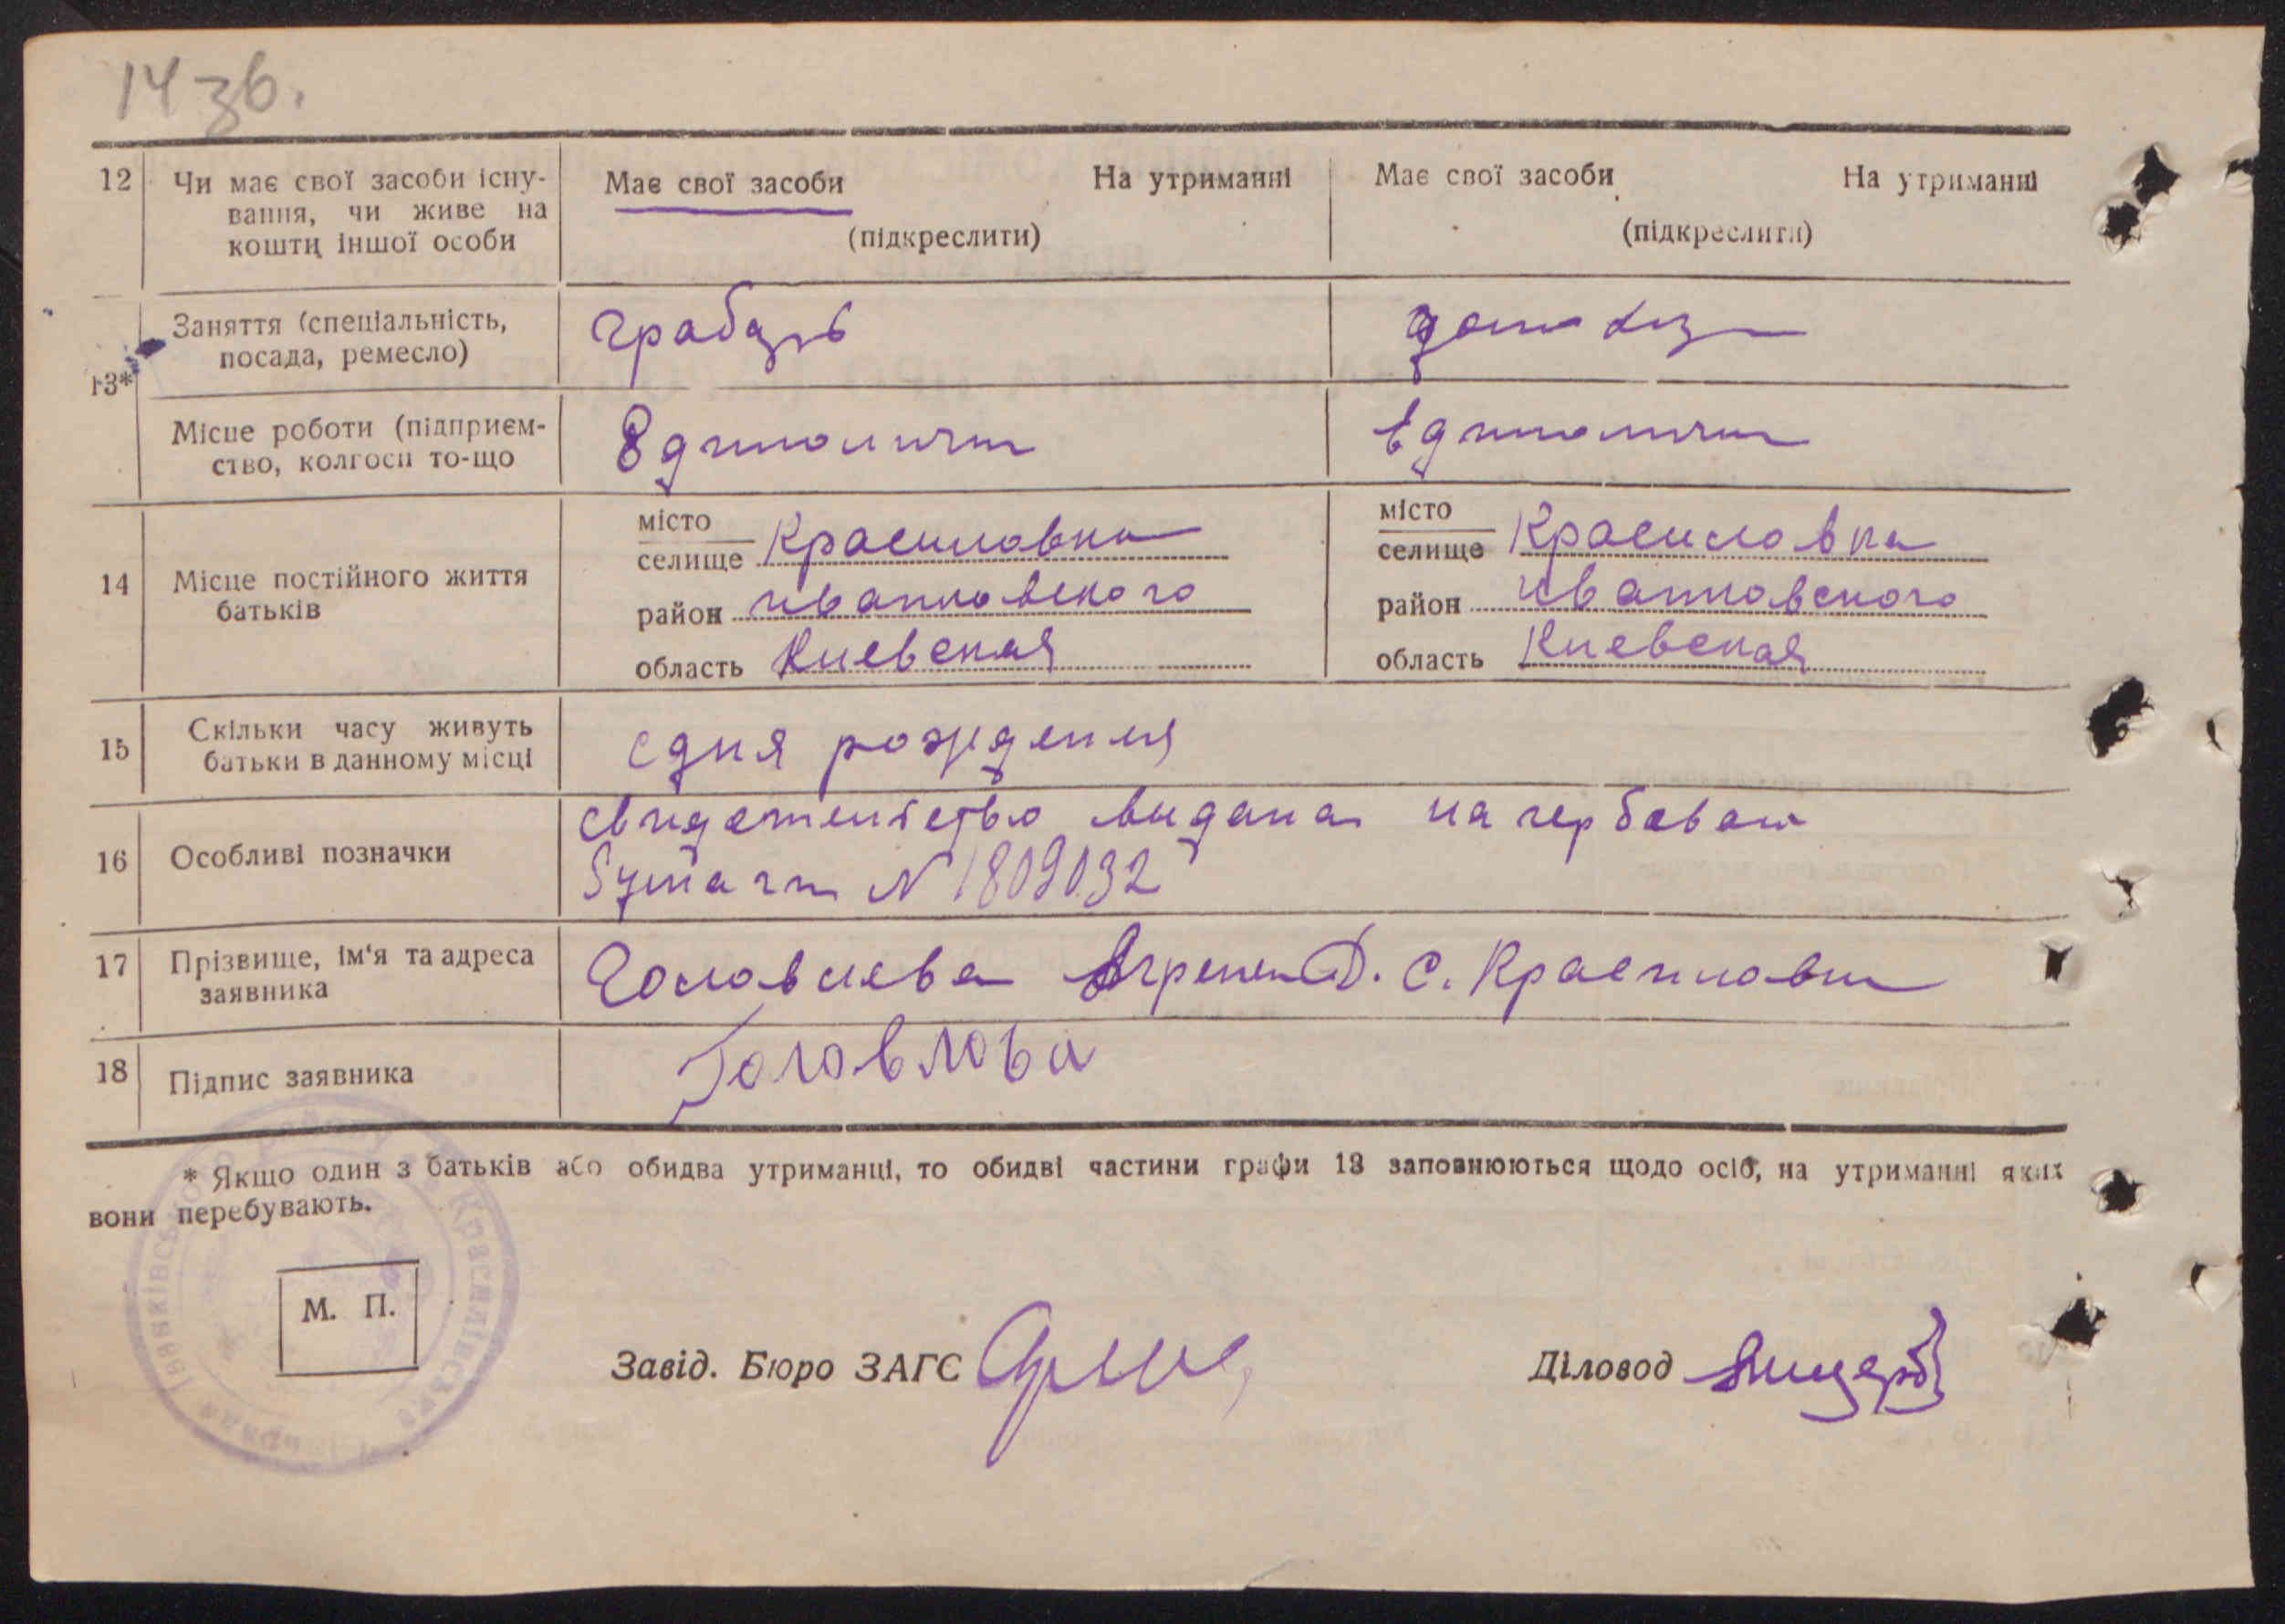 14 зв.
12 Чи має свої засоби існу-
вання, чи живе на
кошти іншої особи
Має свої засоби На утриманні
(підкреслити)
Має свої засоби На утриманні
(підкреслити)
13*
Заняття (спеціальність,
посада, ремесло)
грабарь
Місце роботи (підприєм-
ство, колгосп то-що
Единоличн
Единоличн
14 Місце постійного життя
батьків
місто
селище Красиловка
район иванковского
область Киевская
місто
селище Красиловка
район иванковского
область Киевская
15 Скільки часу живуть
батьки в данному місці
с дня рождения
16 Особливі позначки
свидетельство видана на гербовой
бумаги N 1809032
17 Прізвище, ім'я та адреса
заявника
Головлева Агрепена Д. с. Красиловка
18 Підпис заявника
Головлова
* Якщо один з батьків або обидва утриманці, то обидві частини графи 13 заповнюються щодо осіб, на утриманні яких
вони перебувають.
М. П.
Завід. Бюро ЗАГС
Діловод